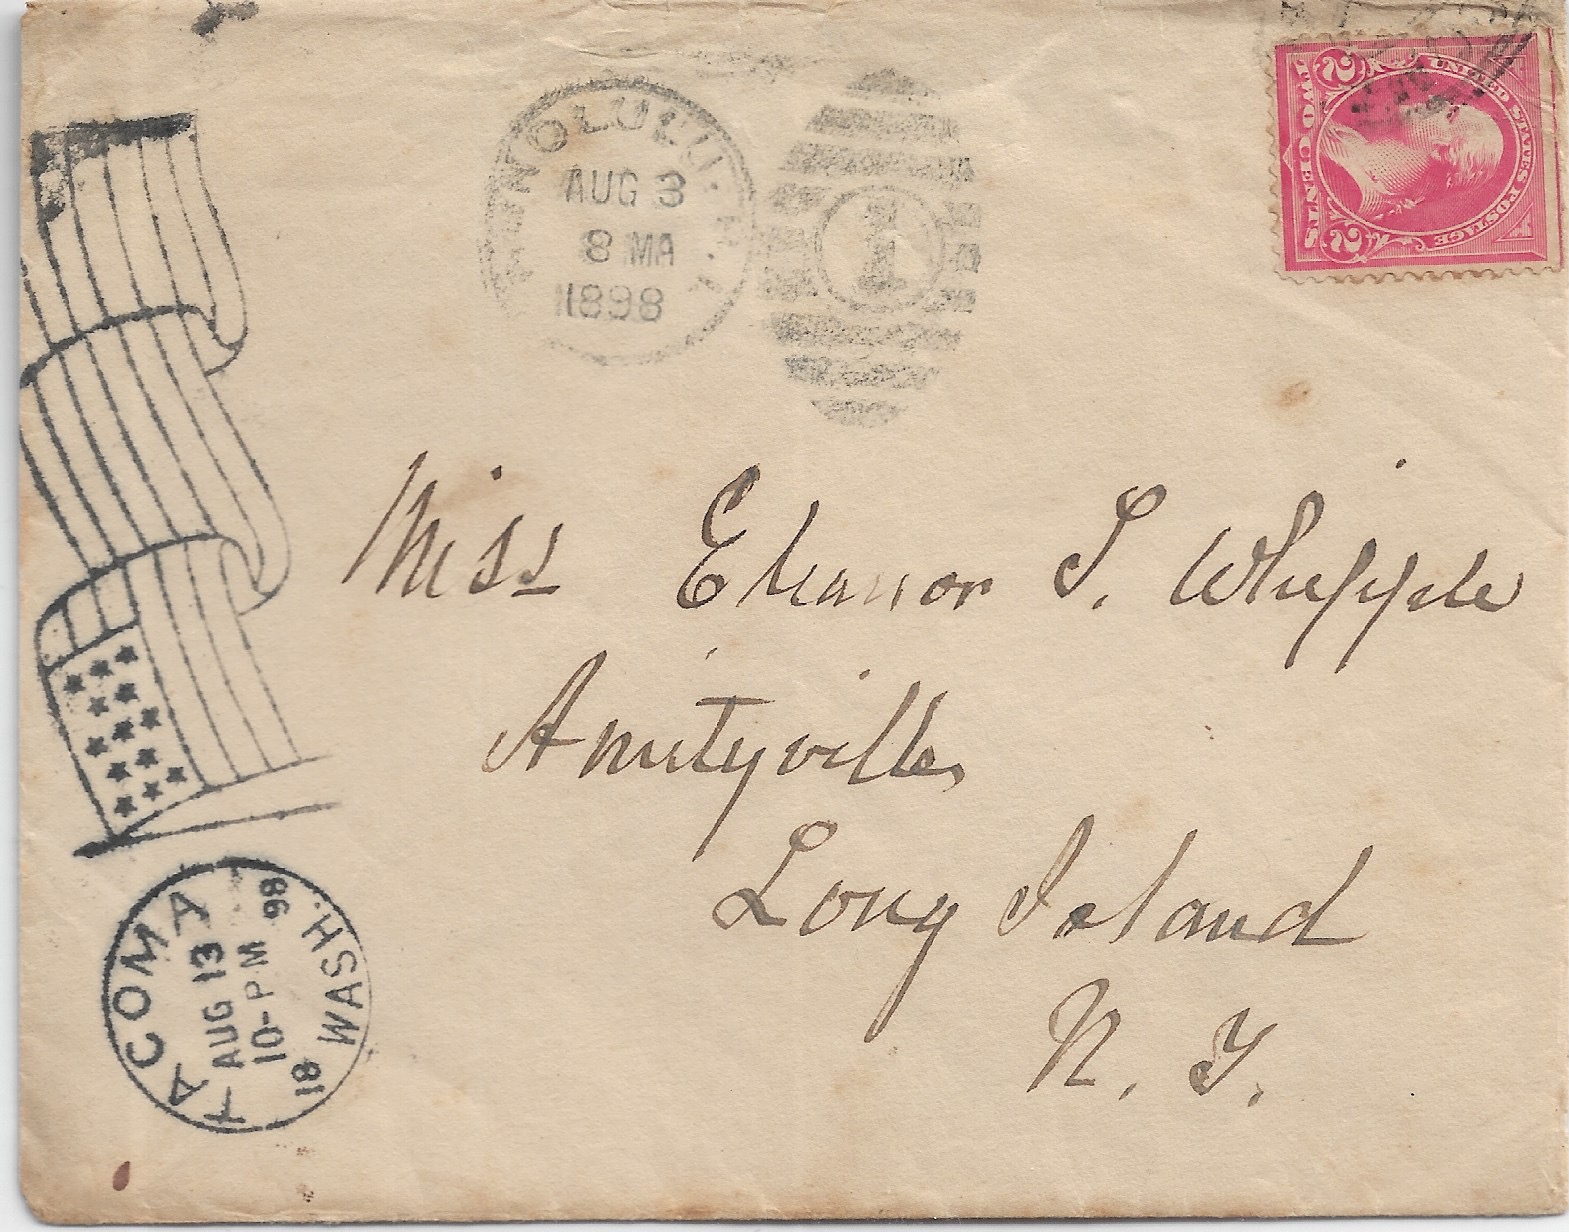 HONOLULU. H.I.
AUG 3
8 MA
1898
1
UNITED STATES POSTAGE
2 TWO CENTS 2
Miss Eleanor S. Whipple
Amityville,
Long Island
N. Y.
TACOMA WASH.
AUG 13
10-PM
18 98